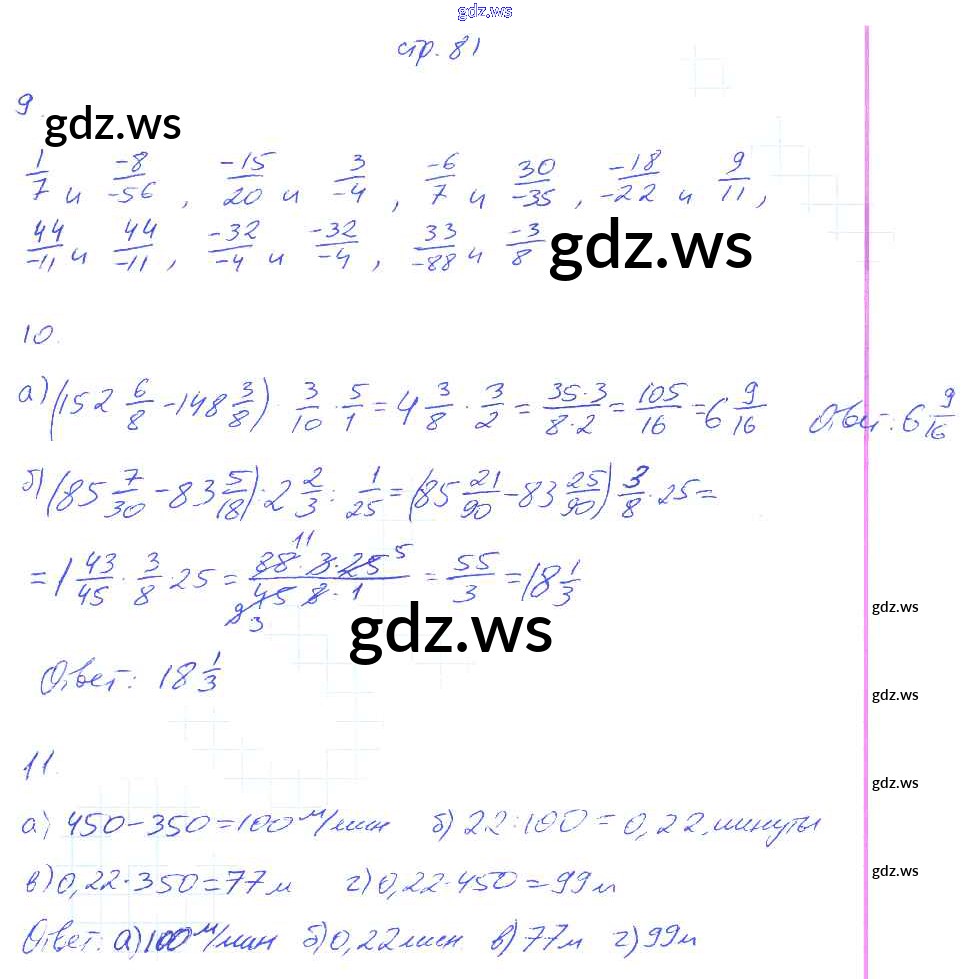 gdz.ws
стр. 81
9.
gdz.ws
1/7 и -8/-56, -15/20 и 3/-4, -6/7 и 30/-35, -18/-22 и 9/11,
44/-11 и 44/-11, -32/-4 и -32/-4, 33/-88 и -3/8 gdz.ws
10.
а) (152 6/8 - 148 3/8) · 3/10 · 5/1 = 4 3/8 · 3/2 = 35·3/8·2 = 105/16 = 6 9/16 Ответ: 6 9/16
б) (85 7/30 - 83 5/18) : 2 2/3 : 1/25 = (85 21/90 - 83 25/90) 3/8 · 25 =
= 1 43/45 · 3/8 · 25 = 88 11 · 3 · 25 5/45 9 3 · 8 · 1 = 55/3 = 18 1/3
gdz.ws
gdz.ws
Ответ: 18 1/3
gdz.ws
11.
gdz.ws
а) 450 - 350 = 100 м/мин б) 22 : 100 = 0,22 минуты
в) 0,22 · 350 = 77 м г) 0,22 · 450 = 99 м
gdz.ws
Ответ: а) 100 м/мин б) 0,22 мин в) 77 м г) 99 м